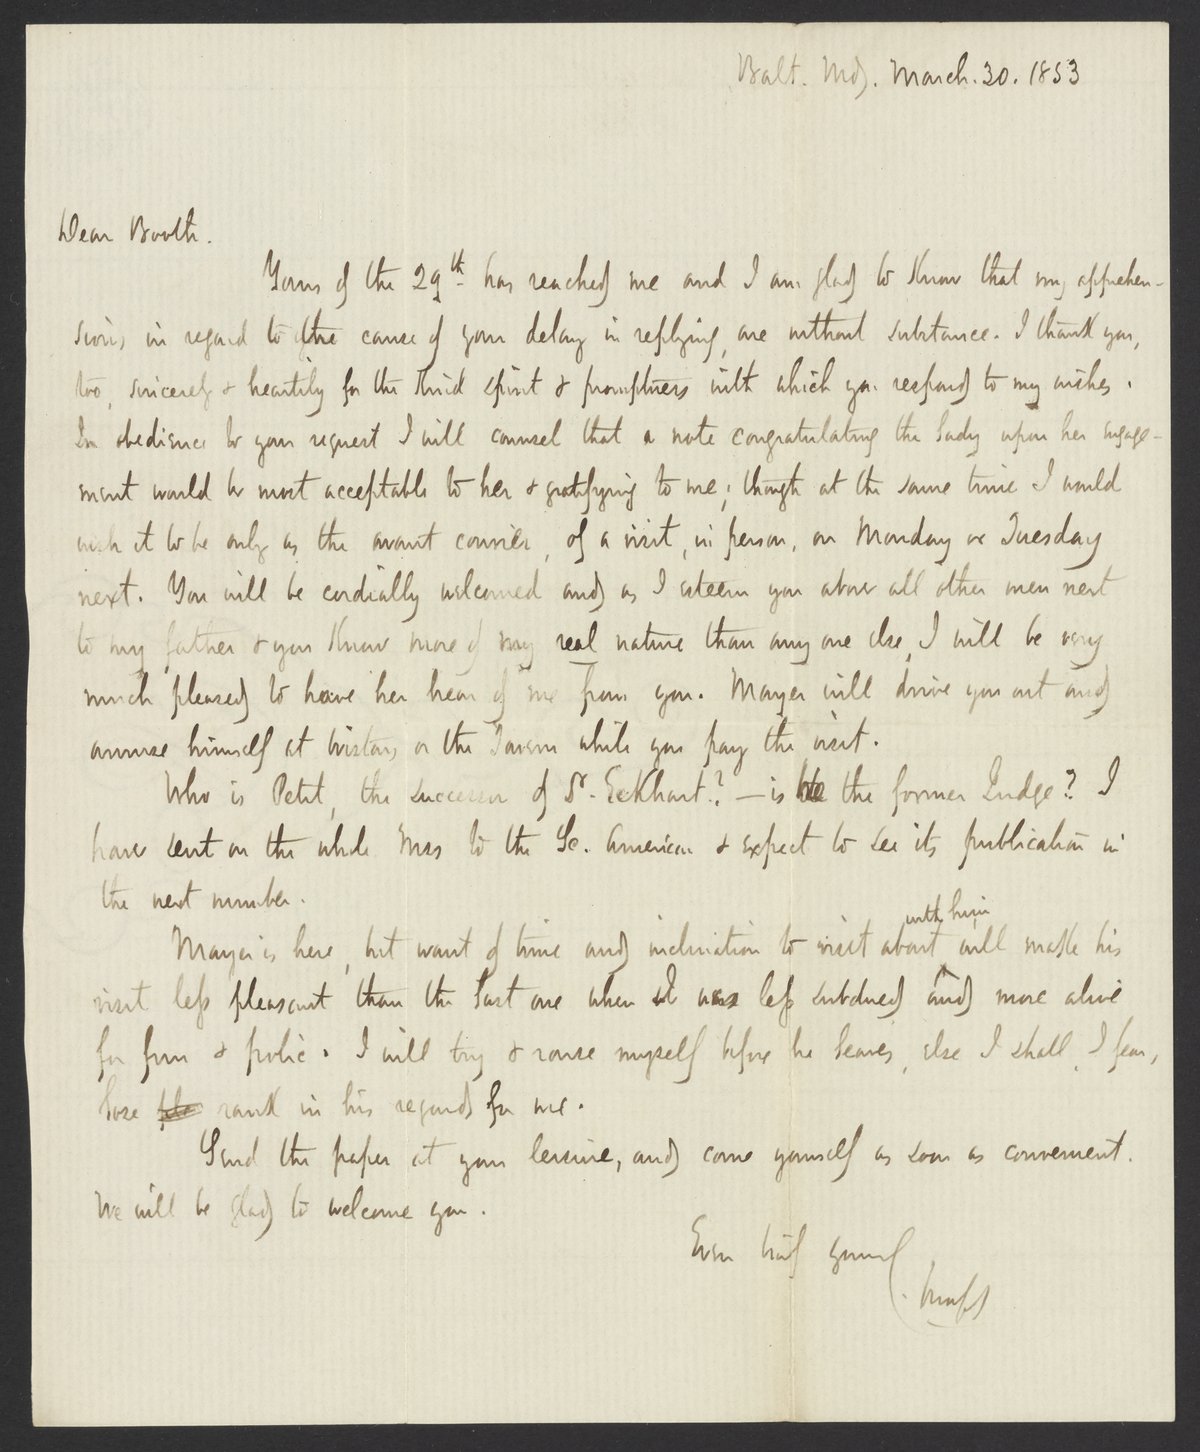 Balt. Md. March. 30. 1853
Dear Booth.
Yours of the 29th has reached me and I am glad to know that my apprehen-
sions in regard to the cause of your delay in replying, are without substance. I thank you,
too, sincerely & heartily for the kind spirit & promptness with which you respond to my wishes.
In obedience to your request I will counsel that a note congratulating the Lady upon her engage-
ment would be most acceptable to her & gratifying to me; though at the same time I would
wish it to be only as the avant courier, of a visit, in person, on Monday or Tuesday
next. You will be cordially welcomed and as I esteem you above all other men next
to my father & you know more of my real nature than any one else, I will be very
much pleased to have her hear of me from you. Mayer will drive you out and
amuse himself at or the Tavern while you pay the visit.
Who is Petit, the successor of Dr. Eckhart? — is he the former Judge? I
have sent on the whole Mss to the Sc. American & expect to see its publication in
the next number.
with him
Mayer is here, but want of time and inclination to visit about will make his
visit less pleasant than the last one when I was less subdued and more alive
for fun & frolic. I will try & rouse myself before he leaves, else I shall, I fear,
lose rank in his regard for me.
Send the paper at your leisure, and come yourself as soon as convenient.
We will be glad to welcome you.
Ever truly yours